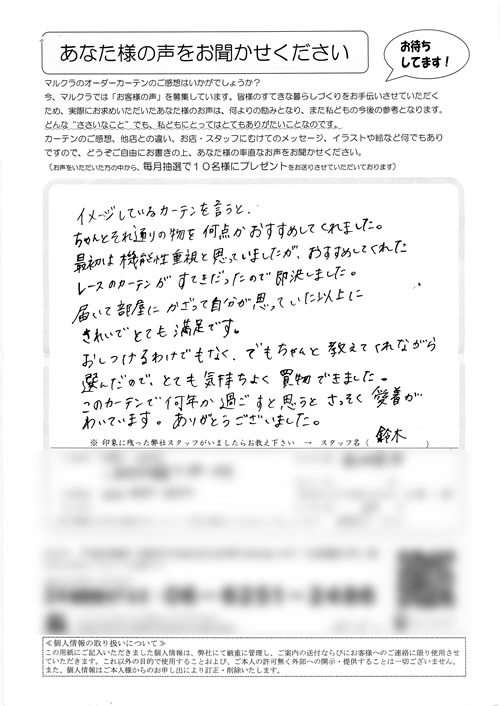 あなた様の声をお聞かせください
お待ち
してます!
マルクラのオーダーカーテンのご感想はいかがでしょうか?
今、マルクラでは「お客様の声」を募集しています。皆様のすてきな暮らしづくりをお手伝いさせていただく
ため、実際にお求めいただいたあなた様のお声は、何よりの励みとなり、また私どもの今後の参考となります。
どんな“ささいなこと”でも、私どもにとってはとてもありがたいことなのです。
カーテンのご感想、他店との違い、お店・スタッフにむけてのメッセージ、イラストや絵など何でもあり
ですので、どうぞご自由にお書きの上、あなた様の率直なお声をお聞かせください。
(お声をいただいた方の中から、毎月抽選で10名様にプレゼントをお送りさせていただいております)
イメージしているカーテンを言うと、
ちゃんとそれ通りの物を何点かおすすめしてくれました。
最初は機能性重視と思っていましたが、おすすめしてくれた
レースのカーテンがすてきだったので即決しました。
届いて部屋にかざって自分が思っていた以上に
きれいでとても満足です。
おしつけるわけでもなく、でもちゃんと教えてくれながら
選んだので、とても気持ちよく買物できました。
このカーテンで何年か過ごすと思うとさっそく愛着が
わいています。ありがとうございました。
※印象に残った弊社スタッフがいましたらお教え下さい → スタッフ名( 鈴木 )
06-6251-2486
≪個人情報の取り扱いについて≫
この用紙にご記入いただきました個人情報は、弊社にて厳重に管理し、ご案内の送付ならびにお客様へのご連絡に限り使用させ
ていただきます。これ以外の目的で使用することおよび、ご本人の許可無く外部への開示・提供することは一切ございません。
また、個人情報はご本人様からのお申し出により訂正・削除いたします。